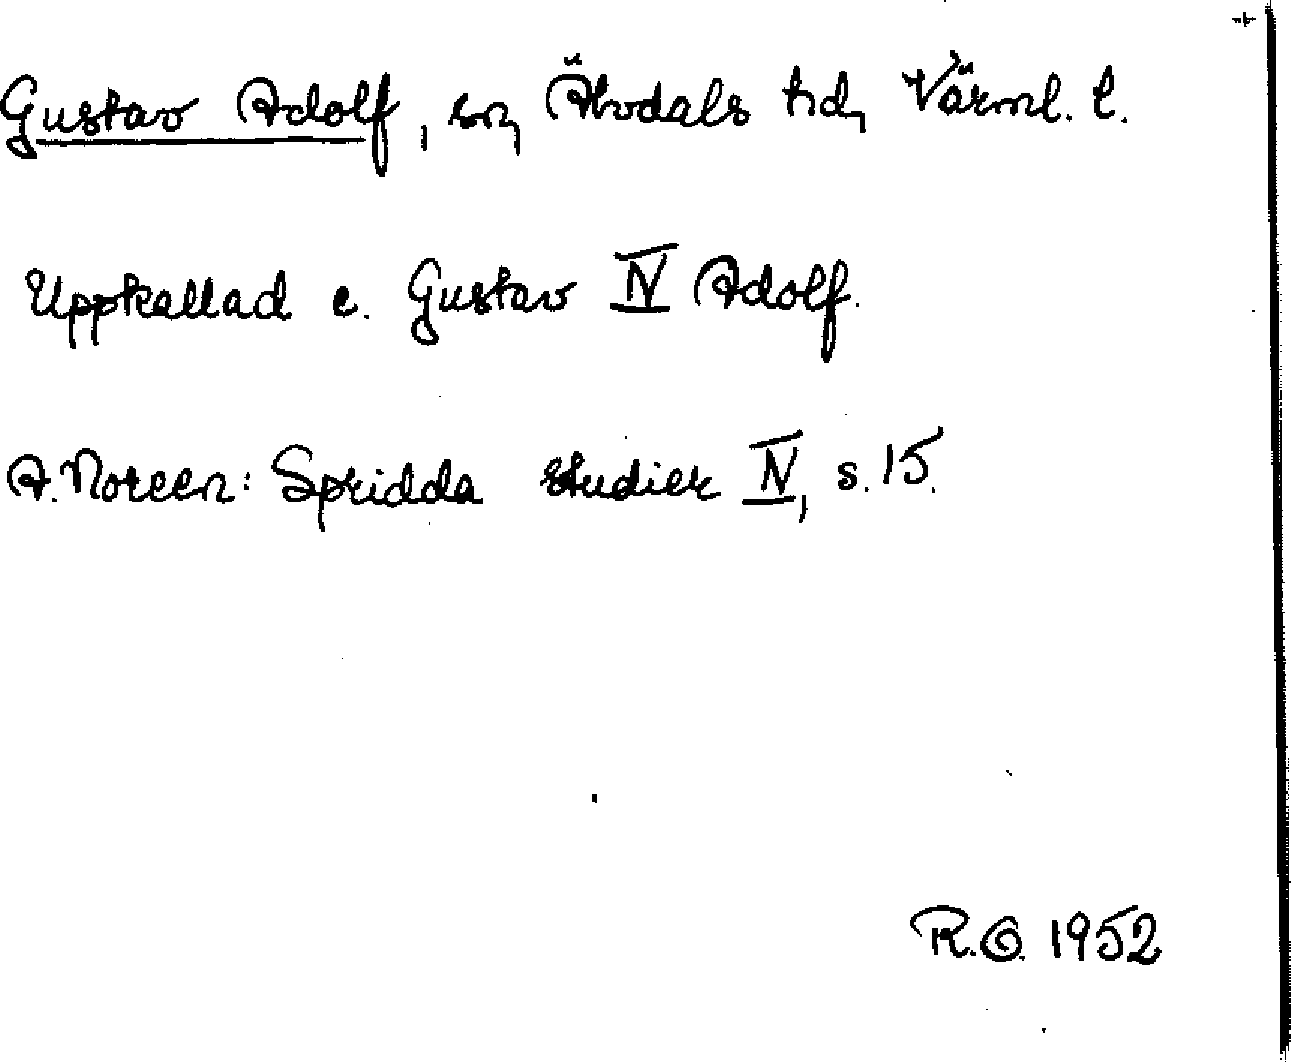 Gustav Adolf, sn, Älvdals hd, Värml. l.
Uppkallad e. Gustav IV Adolf.
A. Noreen: Spridda studier IV, s. 15.
R.O. 1952